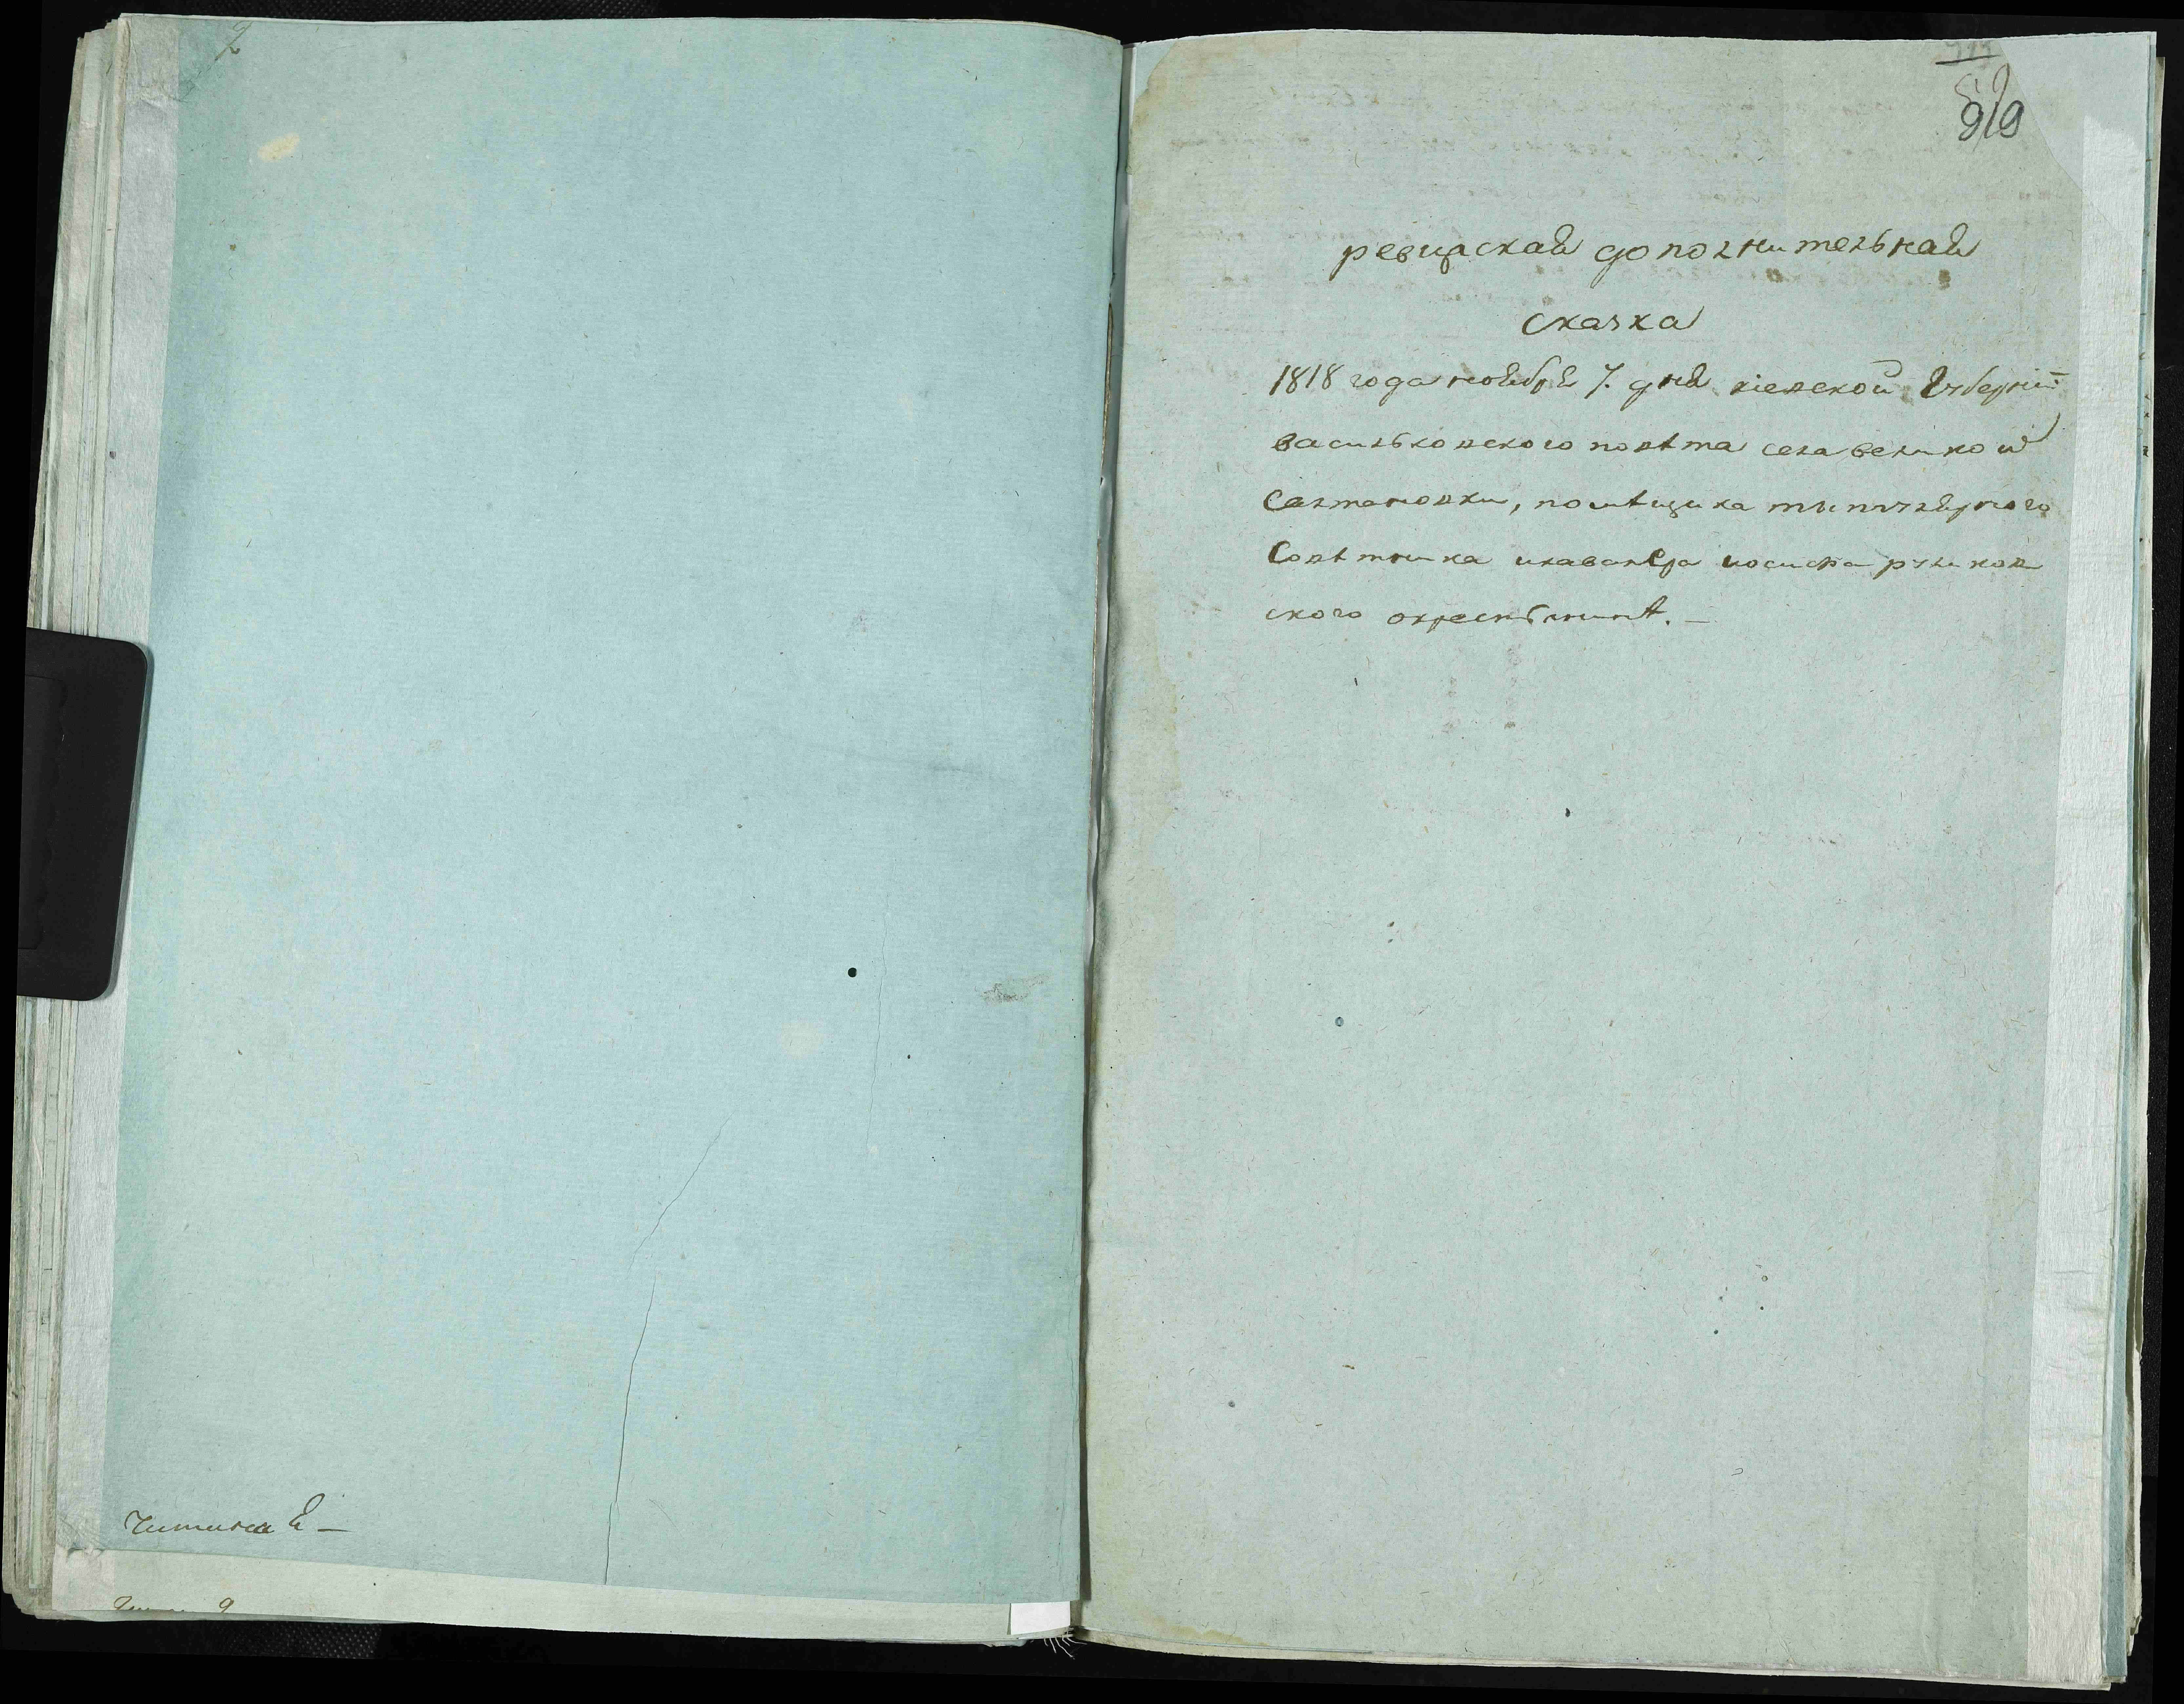 2
читалъ
919
ревизская дополнительная
сказка
1818 года ноября 7. дня кіевской Губерніи
васильковского повѣта села великой
Салтановки, помѣщика титулярного
Совѣтника икавалера иосифа руликов
ского окрестьянѣ. —